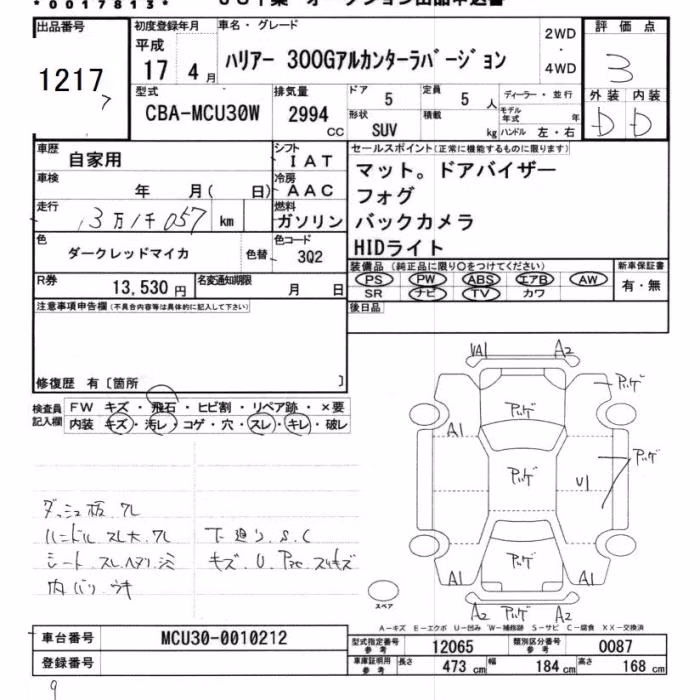 *0017813*
出品番号
1217
7
初度登録年月
平成
17年4月
車名・グレード
ハリアー 300Gアルカンターラバージョン
2WD
・
4WD
評価点
3
外装 内装
D D
型式
CBA-MCU30W
排気量
2994
CC
ドア
5
定員
5人
ディーラー・並行
形状
SUV
積載
kg
モデル年式
年
ハンドル 左・右
車歴
自家用
シフト
IAT
車検
年 月( 日)
冷房
AAC
走行
3万1千057
km
燃料
ガソリン
色
ダークレッドマイカ
色替
色コード
3Q2
R券
13,530円
名変通知期限
月 日
セールスポイント(正常に機能するものに限ります)
マット。ドアバイザー
フォグ
バックカメラ
HIDライト
装備品(純正品に限り○をつけてください)
PS PW ABS エアB AW
SR ナビ TV カワ
新車保証書
有・無
後日品
注意事項申告欄(不具合内容等は具体的に記入して下さい)
修復歴 有〔箇所 〕
検査員
記入欄
FW キズ・飛石・ヒビ割・リペア跡・×要
内装 キズ・汚レ・コゲ・穴・スレ・キレ・破レ
ダッシュ板 ワレ
ハンドル スレ大 ワレ
シート スレ ヘタリ シミ
内バリ ウキ
下廻り S.C
キズ U
A2
A1
U1
A1
A1
A1
A2
A2
スペア
A-キズ E-エクボ U-凹み W-補修跡 S-サビ C-腐食 XX-交換済
車台番号
MCU30-0010212
登録番号
型式指定番号
参考
12065
類別区分番号
参考
0087
車庫証明用
参考
長さ
473cm
幅
184cm
高さ
168cm
9